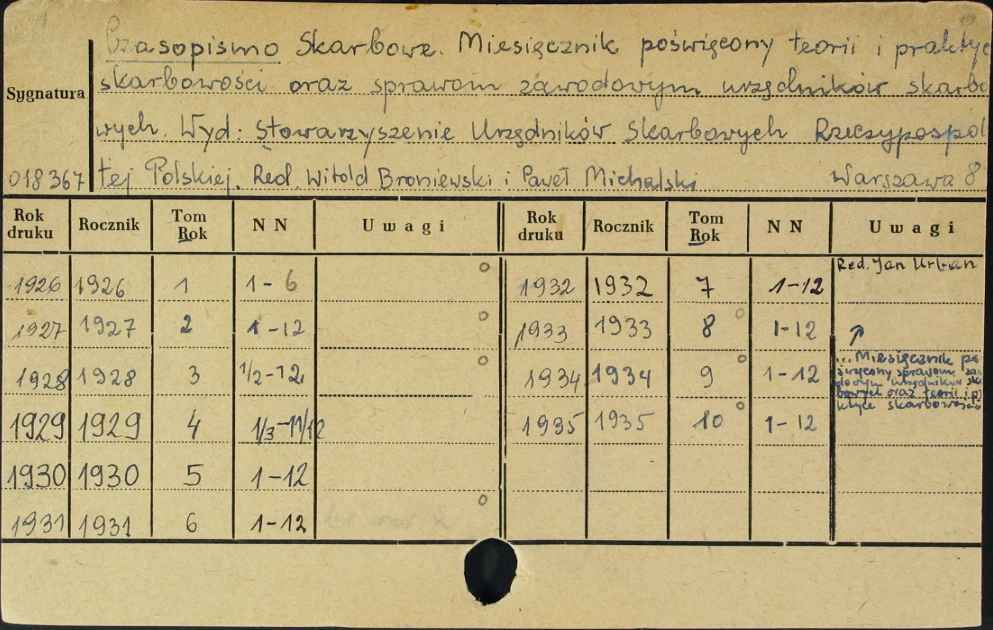 Czasopismo Skarbowe. Miesięcznik poświęcony teorii i praktyc
skarbowości oraz sprawom zawodowym urzędników skarbo
wych. Wyd: Stowarzyszenie Urzędników Skarbowych Rzeczypospol
Sygnatura
018367
tej Polskiej. Red. Witold Broniewski i Paweł Michalski Warszawa 8°
Rok druku Rocznik Tom Rok N N Uwagi Rok druku Rocznik Tom Rok N N Uwagi
1926 1926 1 1-6 1932 1932 7 1-12 Red. Jan Urban
1927 1927 2 1-12 1933 1933 8 1-12
1928 1928 3 1/2-12 1934 1934 9 1-12
...Miesięcznik po
święcony sprawom za
dowym urzędników sk
bowych oraz teorii i p
ktyce skarbowości
1929 1929 4 1/3-11/12 1935 1935 10 1-12
1930 1930 5 1-12
1931 1931 6 1-12